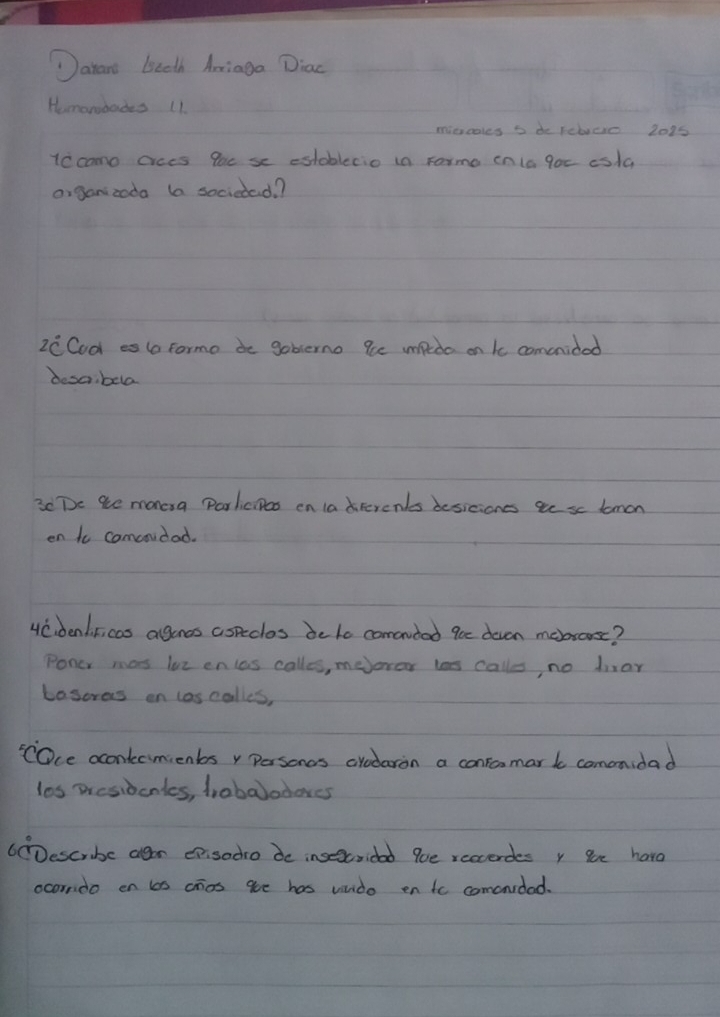 Iseth Arriaga Diaz
Humanidades II.
miercoles 5 de febrero 2025
1¿como crees que se establecio la forma en la que esta
organizada la sociedad?
2¿Cual es la forma de gobierno que impeda en tu comunidad
describela
3¿De que manera Participas en la diferentes desiciones que se toman
en tu comunidad.
4¿identificas algunos aspectos de tu comunidad que deven mejorarse?
Poner mas luz en las calles, mejorar las calles, no tirar
basuras en las calles,
5¿Que acontecimientos y Personas ayudaron a conformar tu comunidad
los Presidentes, trabajadores
6¿Describe algun episodio de inseguridad que recuerdes y que haya
ocorrido en los años que has vivido en tu comunidad.